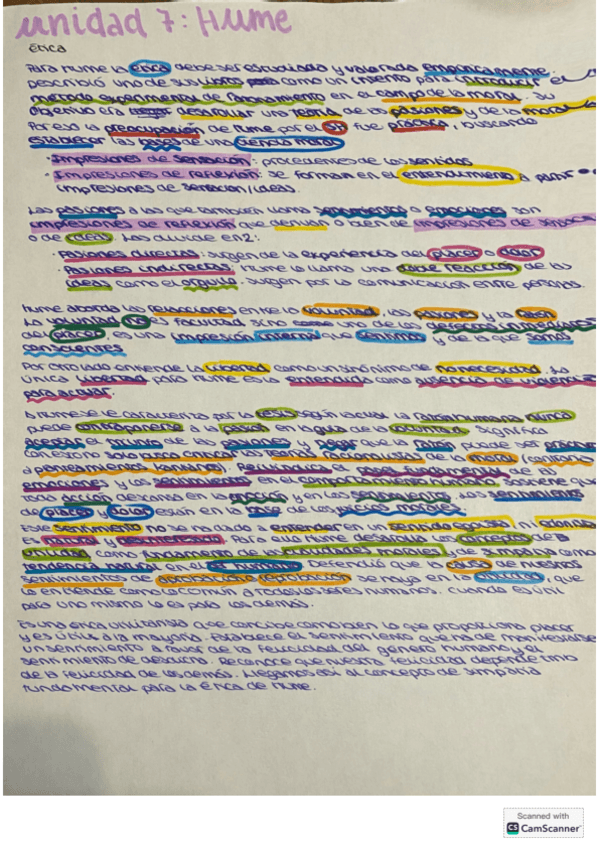 unidad 7: Hume
Ética
Para Hume la ética debe ser estudiada y valorada empíricamente.
Describió uno de sus libros como un intento para introducir el
método experimental de razonamiento en el campo de la moral. Su
objetivo era desarrollar una teoría de las pasiones y de la moral
Por eso la preocupación de Hume por el fue práctica, buscando
establecer las bases de una ciencia moral
· Impresiones de sensación: procedentes de los sentidos
· Impresiones de reflexión: se forman en el entendimiento a partir
impresiones de sensación/ideas.
Las pasiones a las que también llama sentimientos o emociones son
impresiones de reflexión que derivan o bien de impresiones de
o de ideas. Las divide en 2:
· Pasiones directas: surgen de la experiencia del placer o dolor
· Pasiones indirectas: Hume lo llama una doble reacción de las
ideas como el orgullo. Surgen por la comunicación entre personas.
Hume aborda las relaciones entre la voluntad, las pasiones y la razón
La voluntad no es facultad sino uno de los efectos inmediatos
del placer, es una impresión interna que sentimos y de la que somos
conscientes
Por otro lado entiende la libertad como un sinónimo de no necesidad. La
única libertad para Hume es la entendida como ausencia de violencia
para actuar.
A Hume se le caracteriza por la tesis según la cual la razón humana nunca
puede contraponerse a la pasión en la guía de la voluntad. Significa
aceptar el triunfo de las pasiones y negar que la razón puede ser práctica
con esto no solo busca criticar las teorías racionalistas de la moral
a pensamientos Reivindica el de las
emociones y los sentimientos en el comportamiento humano. Sostiene que
cada acción descansa en la y en los sentimientos. Los sentimientos
de placer y dolor están en la base de los juicios morales.
Este sentimiento no se ha de entender en un sentido egoísta, ni
Es moral y desinteresado. Para ello Hume desarrolla los conceptos de la
utilidad como fundamento de las cualidades morales y de simpatía como
tendencia natural en el ser humano. Defendió que la causa de nuestros
sentimientos de aprobación o reprobación se haya en la utilidad, que
la entiende como lo común a todos los seres humanos. Cuando es útil
para uno mismo lo es para los demás.
Es una ética utilitarista que concibe como bien lo que proporciona placer
y es útil a la mayoría. Establece el sentimiento que ha de manifestarse
un sentimiento a favor de la felicidad del género humano y el
sentimiento de desacuerdo. Reconoce que nuestra felicidad depende
de la felicidad de los demás. Llegamos así al concepto de simpatía
fundamental para la Ética de Hume.
Scanned with
CS CamScanner